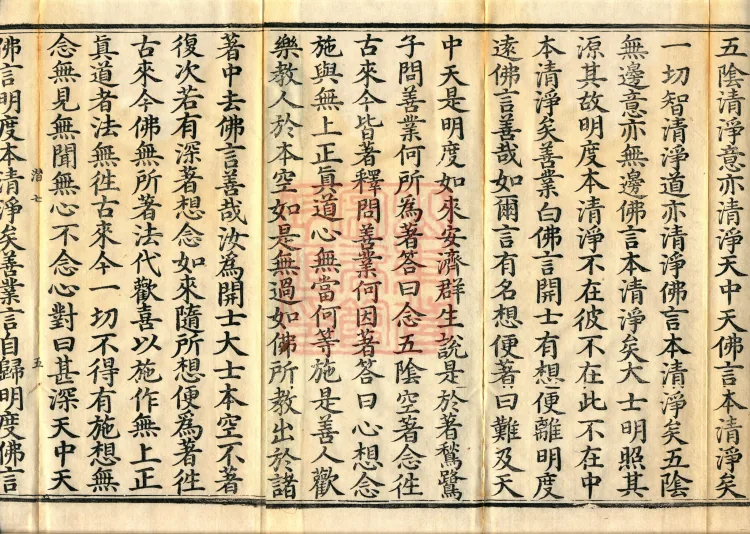 五陰清淨意亦清淨天中天佛言本清淨矣
一切智清淨道亦清淨佛言本清淨矣五陰
無邊意亦無邊佛言本清淨矣大士明照其
源其故明度本清淨不在彼不在此不在中
本清淨矣善業白佛言開士有想便離明度
遠佛言善哉如爾言有名想便著曰難及天
中天是明度如來安濟群生說是於著鶖鷺
子問善業何所為著答曰念五陰空著念徃
古來今皆著釋問善業何因著答曰心想念
施與無上正真道心無當何等施是善人歡
樂教人於本空如是無過如佛所教出於諸
著中去佛言善哉汝為開士大士本空不著
復次若有深著想念如來隨所想便為著徃
古來今佛無所著法代歡喜以施作無上正
真道者法無徃古來今一切不得有施想無
念無見無聞無心不念心對曰甚深天中天
潜七
五
佛言明度本清淨矣善業言自歸明度佛言